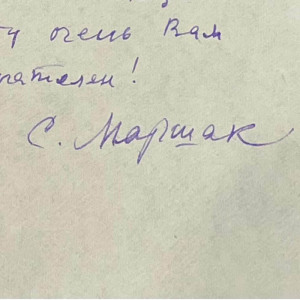 ту очень Вам
нателен!
С. Маршак